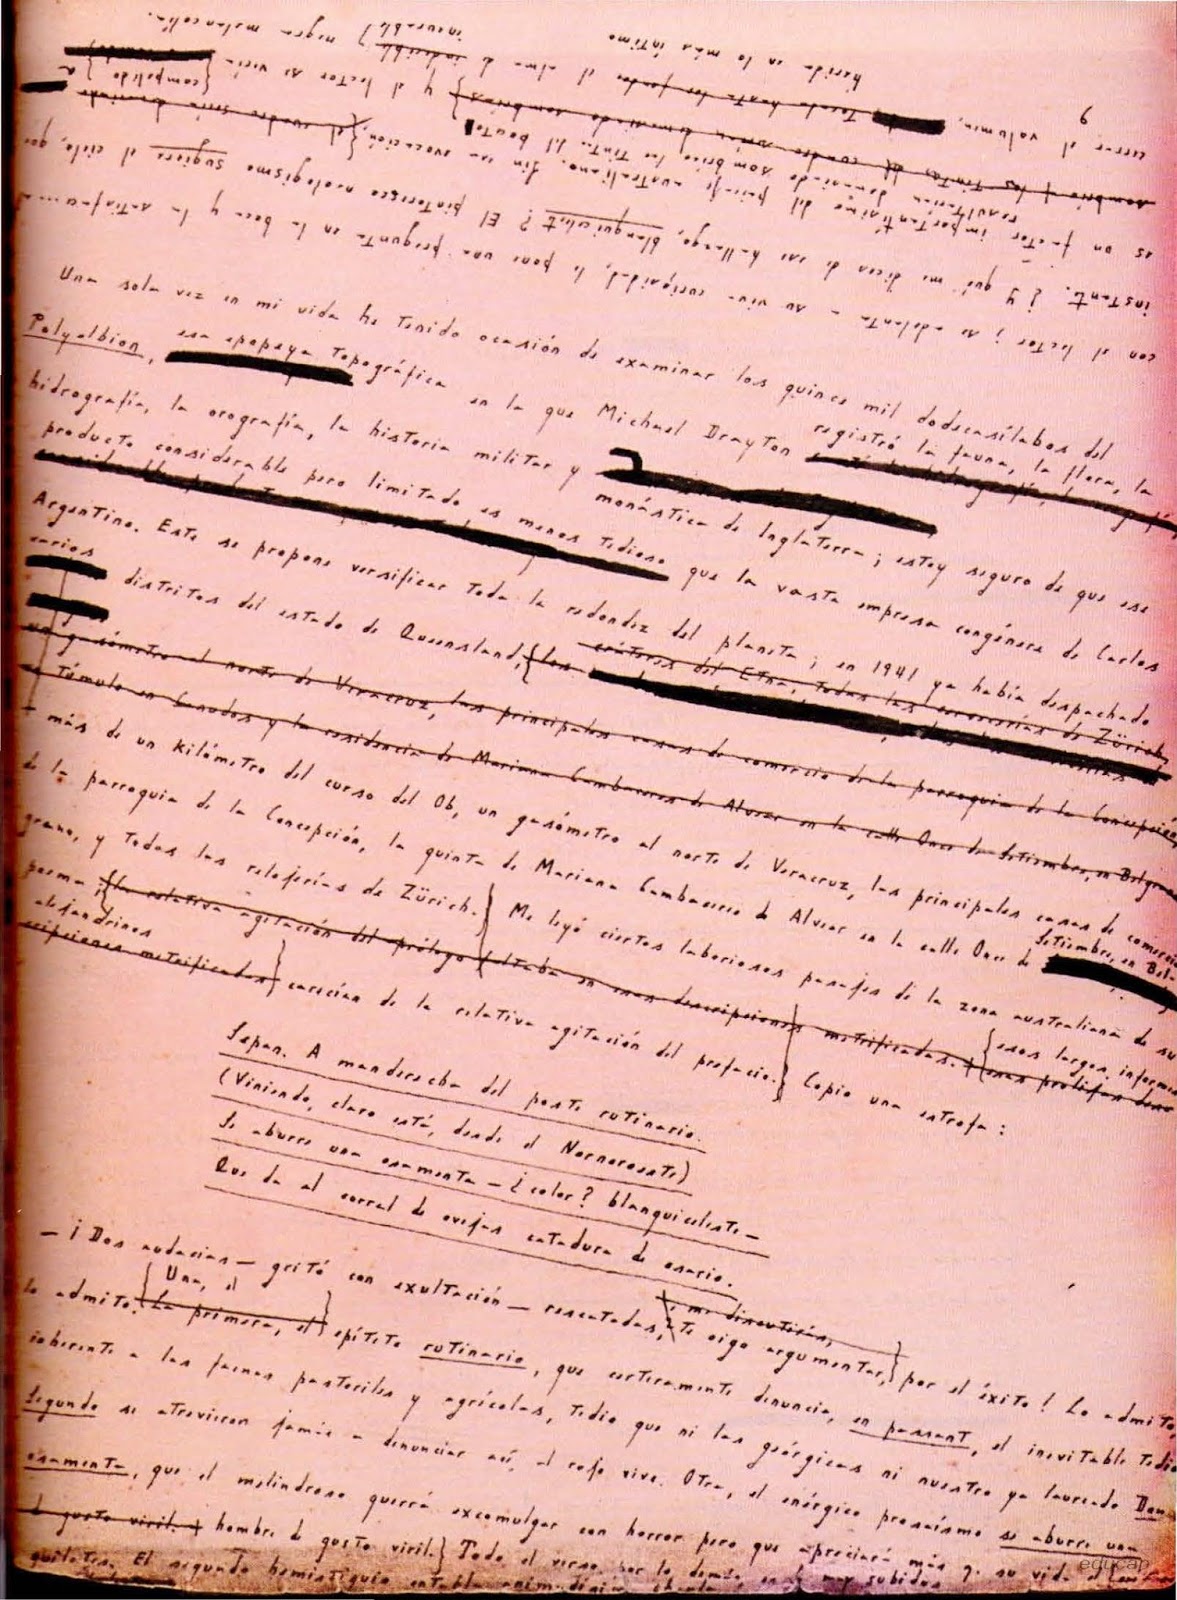 Una sola vez en mi vida he tenido ocasión de examinar los quince mil dodecasílabos del
Polyolbion, esa epopeya topográfica en la que Michael Drayton registró la fauna, la flora, la
hidrografía, la orografía, la historia militar y monástica de Inglaterra; estoy seguro de que ese
producto considerable pero limitado es menos tedioso que la vasta empresa congénere de Carlos
Argentino. Este se propone versificar toda la redondez del planeta; en 1941 ya había despachado
varios distritos del estado de Queensland, {los cráteres del Etna, todas las cervecerías de Zürich,
un gasómetro al norte de Veracruz, las principales casas de comercio de la parroquia de la Concepción,
un túmulo en Canudos y la residencia de Mariana Cambaceres de Alvear en la calle Once de Setiembre, en Belgrano
+ más de un kilómetro del curso del Ob, un gasómetro al norte de Veracruz, las principales casas de comercio
de la parroquia de la Concepción, la quinta de Mariana Cambaceres de Alvear en la calle Once de Setiembre, en Bel-
grano, y todas las relojerías de Zürich.} Me leyó ciertos laboriosos pasajes de la zona australiana de su
poema; {la relativa agitación del prólogo faltaba en esas descripciones metrificadas. + {esos largos informes
alejandrinos
cripciones metrificadas} carecían de la relativa agitación del prefacio.} Copio una estrofa:
Sepan. A manderecha del poste rutinario
(Viniendo, claro está, desde el Nornoroeste)
Se aburre una osamenta — ¿color? blanquiceleste —
Que da al corral de ovejas catadura de osario.
— ¡Dos audacias — gritó con exultación — rescatadas, {me discutirás, te oigo argumentar,} por el éxito! Lo admito,
lo admito. {La primera, el Una, el} epíteto rutinario, que certeramente denuncia, en passant, el inevitable tedio
inherente a las faenas pastoriles y agrícolas, tedio que ni las geórgicas ni nuestro ya laureado Don
Segundo se atrevieron jamás a denunciar así, al rojo vivo. Otra, el enérgico prosaísmo se aburre una
osamenta, que el melindroso querrá excomulgar con horror pero que apreciará más q. su vida el
de gusto viril. + hombre de gusto viril.} Todo el verso, por lo demás, es de muy subidos
quilates. El segundo hemistiquio entabla animadísima charla
con el lector; se adelanta a su viva curiosidad, le pone una pregunta en la boca y la satisface
instante. ¿Y qué me dices de ese hallazgo, blanquiceleste? El pintoresco neologismo sugiere el cielo, que
es un factor importantísimo del paisaje australiano. Sin esa evocación, {el cuadro sería demasiado
resultarían demasiado sombrías las tintas del boceto
sombrío
y el lector se vería {compelido
cerrar el volumen,
herida en lo más íntimo el alma de incurable} negra melancolía.
9
educap